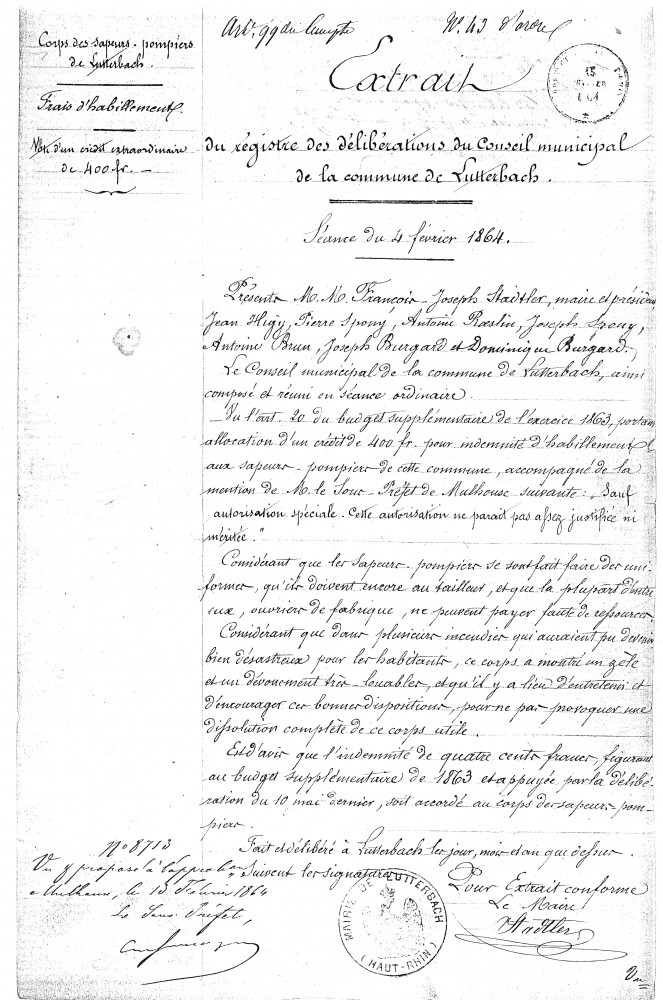 Art. 99 du Compte
N°. 43 d'ordre
Corps des sapeurs-pompiers
de Lutterbach.
Frais d'habillement.
Vote d'un crédit extraordinaire
de 400 fr. —
Extrait
15
du régistre des délibérations du Conseil municipal
de la commune de Lutterbach.
Séance du 4 février 1864.
Présents M. M. François-Joseph Stadtler, maire et présiden
Jean Higy, Pierre Spony, Antoine Rœslin, Joseph Spony,
Antoine Brun, Joseph Burgard et Dominique Burgard.
Le Conseil municipal de la commune de Lutterbach, ainsi
composé et réuni en séance ordinaire.
— Vu l'art. 20 du budget supplémentaire de l'exercice 1863, portan
allocation d'un crédit de 400 fr. pour indemnité d'habillement
aux sapeurs-pompiers de cette commune, accompagné de la
mention de M. le Sous-Préfet de Mulhouse suivante: „Sauf
autorisation spéciale. Cette autorisation ne parait pas assez justifiée ni
méritée."
Considérant que les sapeurs-pompiers se sont fait faire des uni-
formes, qu'ils doivent encore au tailleur, et que la plupart d'entre
eux, ouvriers de fabrique, ne peuvent payer faute de ressources
Considérant que dans plusieurs incendies qui auraient pu devenir
bien désastreux pour les habitants, ce corps a montré un zèle
et un dévouement très-louables, et qu'il y a lieu d'entretenir et
d'encourager ces bonnes dispositions, pour ne pas provoquer une
dissolution complète de ce corps utile.
Est d'avis que l'indemnité de quatre cents francs, figurant
au budget supplémentaire de 1863 et appuyée par la délibé-
ration du 10 mai dernier, soit accordé au corps des sapeurs-pom-
piers.
Fait et délibéré à Lutterbach les jour, mois et an que dessus.
Suivent les signatures
Pour Extrait conforme
Le Maire
Stadtler
MAIRIE DE LUTTERBACH
(HAUT-RHIN)
N° 8713
Vu & proposé à l'approbation
Mulhouse, le 13 Février 1864
Le Sous Préfet,
Vu